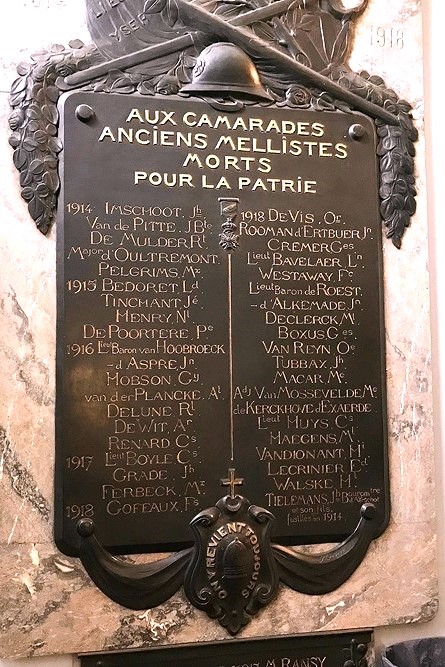 YSER
1918
AUX CAMARADES
ANCIENS MELLISTES
MORTS
POUR LA PATRIE
1914 IMSCHOOT, Jh
VAN DE PITTE, J.Bte
DE MULDER Rt.
MAJOR D'OULTREMONT.
PELGRIMS, Mx.
1915 BEDORET, Ld
TINCHANT Jé.
HENRY, Nl
DE POORTERE, Pe
1916 Lieut BARON VAN HOOBROECK
- D'ASPRE Jn.
MOBSON Gy
VAN DER PLANCKE, At.
DELUNE Rt.
DE WIT, Ar.
RENARD Cs
1917 Lieut BOYLE Cs.
GRADE, Jh
FERBECK, Mx
1918 GOFEAUX, Fs
1918 DE VIS, Or.
ROOMAN D'ERTBUER Jn.
CREMER Ges
Lieut BAVELAER, Ln
WESTAWAY, Fc
Lieut BARON DE ROEST.
- D'ALKEMADE, Jn
DECLERCK, Ml
BOXUS Ges.
VAN REYN Oe
TUBBAX, Jh
MACAR, Me
Adj VAN MOSSEVELDE, Me
DE KERCKHOVE D'EXAERDE
Lieut HUYS, Cs
MAEGENS, Ml
VANDIONANT, Ml
LECRINIER, Ed
WALSKE, Ml
TIELEMANS, Jh Bourgmtre d'Aerschot
et son fils,
fusillés en 1914
ON Y REVIENT TOUJOURS
M. RANSY